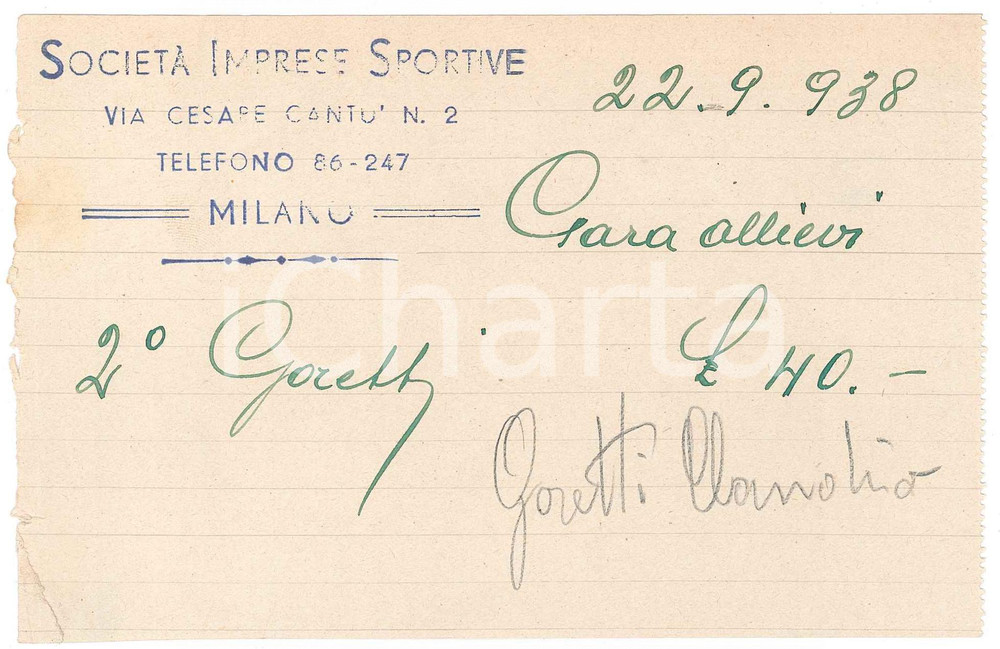 SOCIETÀ IMPRESE SPORTIVE
VIA CESARE CANTU' N. 2
TELEFONO 86-247
MILANO
22.9.938
Gara allievi
2° Goretti £ 40.-
Goretti Claudio
iCharta